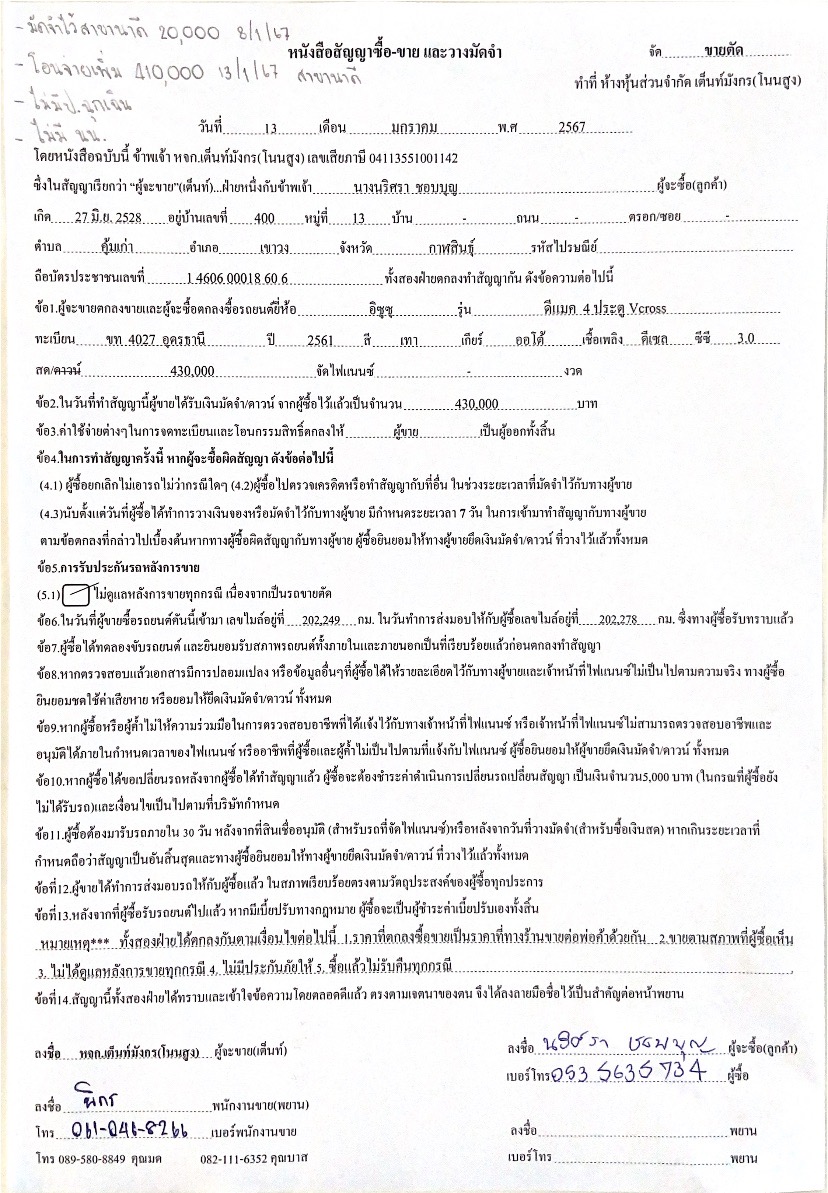 - มัดจำไว้สาขานาดี 20,000 8/1/67
- โอนจ่ายเพิ่ม 410,000 13/1/67 สาขานาดี
- ไม่มีป.ฉุกเฉิน
- ไม่มี นน.
หนังสือสัญญาซื้อ-ขาย และวางมัดจำ
จัด ขายตัด
ทำที่ ห้างหุ้นส่วนจำกัด เต็นท์มังกร(โนนสูง)
วันที่ 13 เดือน มกราคม พ.ศ 2567
โดยหนังสือฉบับนี้ ข้าพเจ้า หจก.เต็นท์มังกร(โนนสูง) เลขเสียภาษี 04113551001142
ซึ่งในสัญญาเรียกว่า "ผู้จะขาย"(เต็นท์)...ฝ่ายหนึ่งกับข้าพเจ้า นางนริศรา ชอบบุญ ผู้จะซื้อ(ลูกค้า)
เกิด 27 มิ.ย. 2528 อยู่บ้านเลขที่ 400 หมู่ที่ 13 บ้าน - ถนน - ตรอก/ซอย -
ตำบล คุ้มเก่า อำเภอ เขาวง จังหวัด กาฬสินธุ์ รหัสไปรษณีย์
ถือบัตรประชาชนเลขที่ 1 4606 00018 60 6 ทั้งสองฝ่ายตกลงทำสัญญากัน ดังข้อความต่อไปนี้
ข้อ1.ผู้จะขายตกลงขายและผู้จะซื้อตกลงซื้อรถยนต์ยี่ห้อ อิซูซุ รุ่น ดีแมค 4 ประตู Vcross
ทะเบียน ขท 4027 อุดรธานี ปี 2561 สี เทา เกียร์ ออโต้ เชื้อเพลิง ดีเซล ซีซี 3.0
สด/ดาวน์ 430,000 จัดไฟแนนซ์ - งวด
ข้อ2.ในวันที่ทำสัญญานี้ผู้ขายได้รับเงินมัดจำ/ดาวน์ จากผู้ซื้อไว้แล้วเป็นจำนวน 430,000 บาท
ข้อ3.ค่าใช้จ่ายต่างๆในการจดทะเบียนและโอนกรรมสิทธิ์ตกลงให้ ผู้ขาย เป็นผู้ออกทั้งสิ้น
ข้อ4.ในการทำสัญญาครั้งนี้ หากผู้จะซื้อผิดสัญญา ดังข้อต่อไปนี้
(4.1) ผู้ซื้อยกเลิกไม่เอารถไม่ว่ากรณีใดๆ (4.2)ผู้ซื้อไปตรวจเครดิตหรือทำสัญญากับที่อื่น ในช่วงระยะเวลาที่มัดจำไว้กับทางผู้ขาย
(4.3)นับตั้งแต่วันที่ผู้ซื้อได้ทำการวางเงินจองหรือมัดจำไว้กับทางผู้ขาย มีกำหนดระยะเวลา 7 วัน ในการเข้ามาทำสัญญากับทางผู้ขาย
ตามข้อตกลงที่กล่าวไปเบื้องต้นหากทางผู้ซื้อผิดสัญญากับทางผู้ขาย ผู้ซื้อยินยอมให้ทางผู้ขายยึดเงินมัดจำ/ดาวน์ ที่วางไว้แล้วทั้งหมด
ข้อ5.การรับประกันรถหลังการขาย
(5.1) ไม่ดูแลหลังการขายทุกกรณี เนื่องจากเป็นรถขายตัด
ข้อ6.ในวันที่ผู้ขายซื้อรถยนต์คันนี้เข้ามา เลขไมล์อยู่ที่ 202,249 กม. ในวันทำการส่งมอบให้กับผู้ซื้อเลขไมล์อยู่ที่ 202,278 กม. ซึ่งทางผู้ซื้อรับทราบแล้ว
ข้อ7.ผู้ซื้อได้ทดลองขับรถยนต์ และยินยอมรับสภาพรถยนต์ทั้งภายในและภายนอกเป็นที่เรียบร้อยแล้วก่อนตกลงทำสัญญา
ข้อ8.หากตรวจสอบแล้วเอกสารมีการปลอมแปลง หรือข้อมูลอื่นๆที่ผู้ซื้อได้ให้รายละเอียดไว้กับทางผู้ขายและเจ้าหน้าที่ไฟแนนซ์ไม่เป็นไปตามความจริง ทางผู้ซื้อ
ยินยอมชดใช้ค่าเสียหาย หรือยอมให้ยึดเงินมัดจำ/ดาวน์ ทั้งหมด
ข้อ9.หากผู้ซื้อหรือผู้ค้ำไม่ให้ความร่วมมือในการตรวจสอบอาชีพที่ได้แจ้งไว้กับทางเจ้าหน้าที่ไฟแนนซ์ หรือเจ้าหน้าที่ไฟแนนซ์ไม่สามารถตรวจสอบอาชีพและ
อนุมัติได้ภายในกำหนดเวลาของไฟแนนซ์ หรืออาชีพที่ผู้ซื้อและผู้ค้ำไม่เป็นไปตามที่แจ้งกับไฟแนนซ์ ผู้ซื้อยินยอมให้ผู้ขายยึดเงินมัดจำ/ดาวน์ ทั้งหมด
ข้อ10.หากผู้ซื้อได้ขอเปลี่ยนรถหลังจากผู้ซื้อได้ทำสัญญาแล้ว ผู้ซื้อจะต้องชำระค่าดำเนินการเปลี่ยนรถเปลี่ยนสัญญา เป็นเงินจำนวน5,000 บาท (ในกรณีที่ผู้ซื้อยัง
ไม่ได้รับรถ)และเงื่อนไขเป็นไปตามที่บริษัทกำหนด
ข้อ11.ผู้ซื้อต้องมารับรถภายใน 30 วัน หลังจากที่สินเชื่ออนุมัติ (สำหรับรถที่จัดไฟแนนซ์)หรือหลังจากวันที่วางมัดจำ(สำหรับซื้อเงินสด) หากเกินระยะเวลาที่
กำหนดถือว่าสัญญาเป็นอันสิ้นสุดและทางผู้ซื้อยินยอมให้ทางผู้ขายยึดเงินมัดจำ/ดาวน์ ที่วางไว้แล้วทั้งหมด
ข้อที่12.ผู้ขายได้ทำการส่งมอบรถให้กับผู้ซื้อแล้ว ในสภาพเรียบร้อยตรงตามวัตถุประสงค์ของผู้ซื้อทุกประการ
ข้อที่13.หลังจากที่ผู้ซื้อรับรถยนต์ไปแล้ว หากมีเบี้ยปรับทางกฎหมาย ผู้ซื้อจะเป็นผู้ชำระค่าเบี้ยปรับเองทั้งสิ้น
หมายเหตุ*** ทั้งสองฝ่ายได้ตกลงกันตามเงื่อนไขต่อไปนี้ 1.ราคาที่ตกลงซื้อขายเป็นราคาที่ทางร้านขายต่อพ่อค้าด้วยกัน 2.ขายตามสภาพที่ผู้ซื้อเห็น
3. ไม่ได้ดูแลหลังการขายทุกกรณี 4. ไม่มีประกันภัยให้ 5. ซื้อแล้วไม่รับคืนทุกกรณี
ข้อที่14.สัญญานี้ทั้งสองฝ่ายได้ทราบและเข้าใจข้อความโดยตลอดดีแล้ว ตรงตามเจตนาของตน จึงได้ลงลายมือชื่อไว้เป็นสำคัญต่อหน้าพยาน
ลงชื่อ หจก.เต็นท์มังกร(โนนสูง) ผู้จะขาย(เต็นท์)
ลงชื่อ นริศรา ชอบบุญ ผู้จะซื้อ(ลูกค้า)
เบอร์โทร 093 5635 734 ผู้ซื้อ
ลงชื่อ นิกร พนักงานขาย(พยาน)
โทร 061-046-8266 เบอร์พนักงานขาย
ลงชื่อ พยาน
โทร 089-580-8849 คุณมด 082-111-6352 คุณบาส
เบอร์โทร พยาน